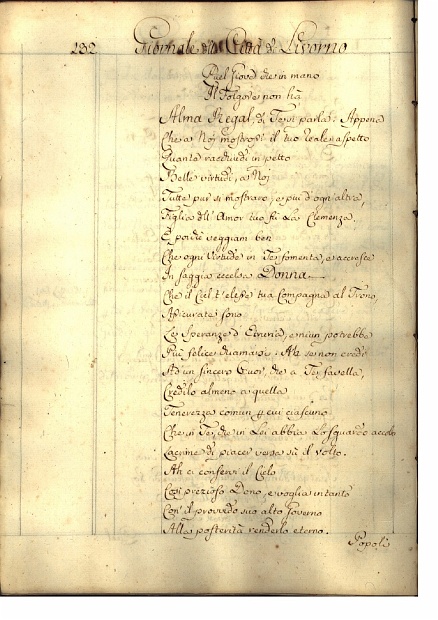 232 Giornale della Città di Livorno
Quel Giove che in mano
Il Folgore non hà
Alma Regal, di Te si parla: Appena
Che a Noi mostrossi il tuo Reale aspetto
Quante racchiudi in petto
Belle virtudi, a Noi
Tutte pur si mostraro; e più d'ogn'altra,
Figlia dell'Amor tuo fù La Clemenza.
E poiche veggiam ben
Che ogni Virtude in Te fomenta, e accresce
In saggia eccelsa Donna
Che il Ciel t'elesse tua Compagna al Trono,
Assicurate sono
Le Speranze d'Etruria, e niun potrebbe
Più felice chiamarsi. Ah se non credi
Ad un sincero Cuor, che a Te favella,
Credilo almeno a quella
Tenerezza comun p cui ciascuno
Che in Te, che in Lei abbia Lo sguardo accolto
Lacrime di piacer versa sù il volto.
Ah ci conservi il Cielo
Così prezioso Dono, e voglia intanto
Con il provvedo suo alto Governo
Alla posterità renderlo eterno.
Popoli